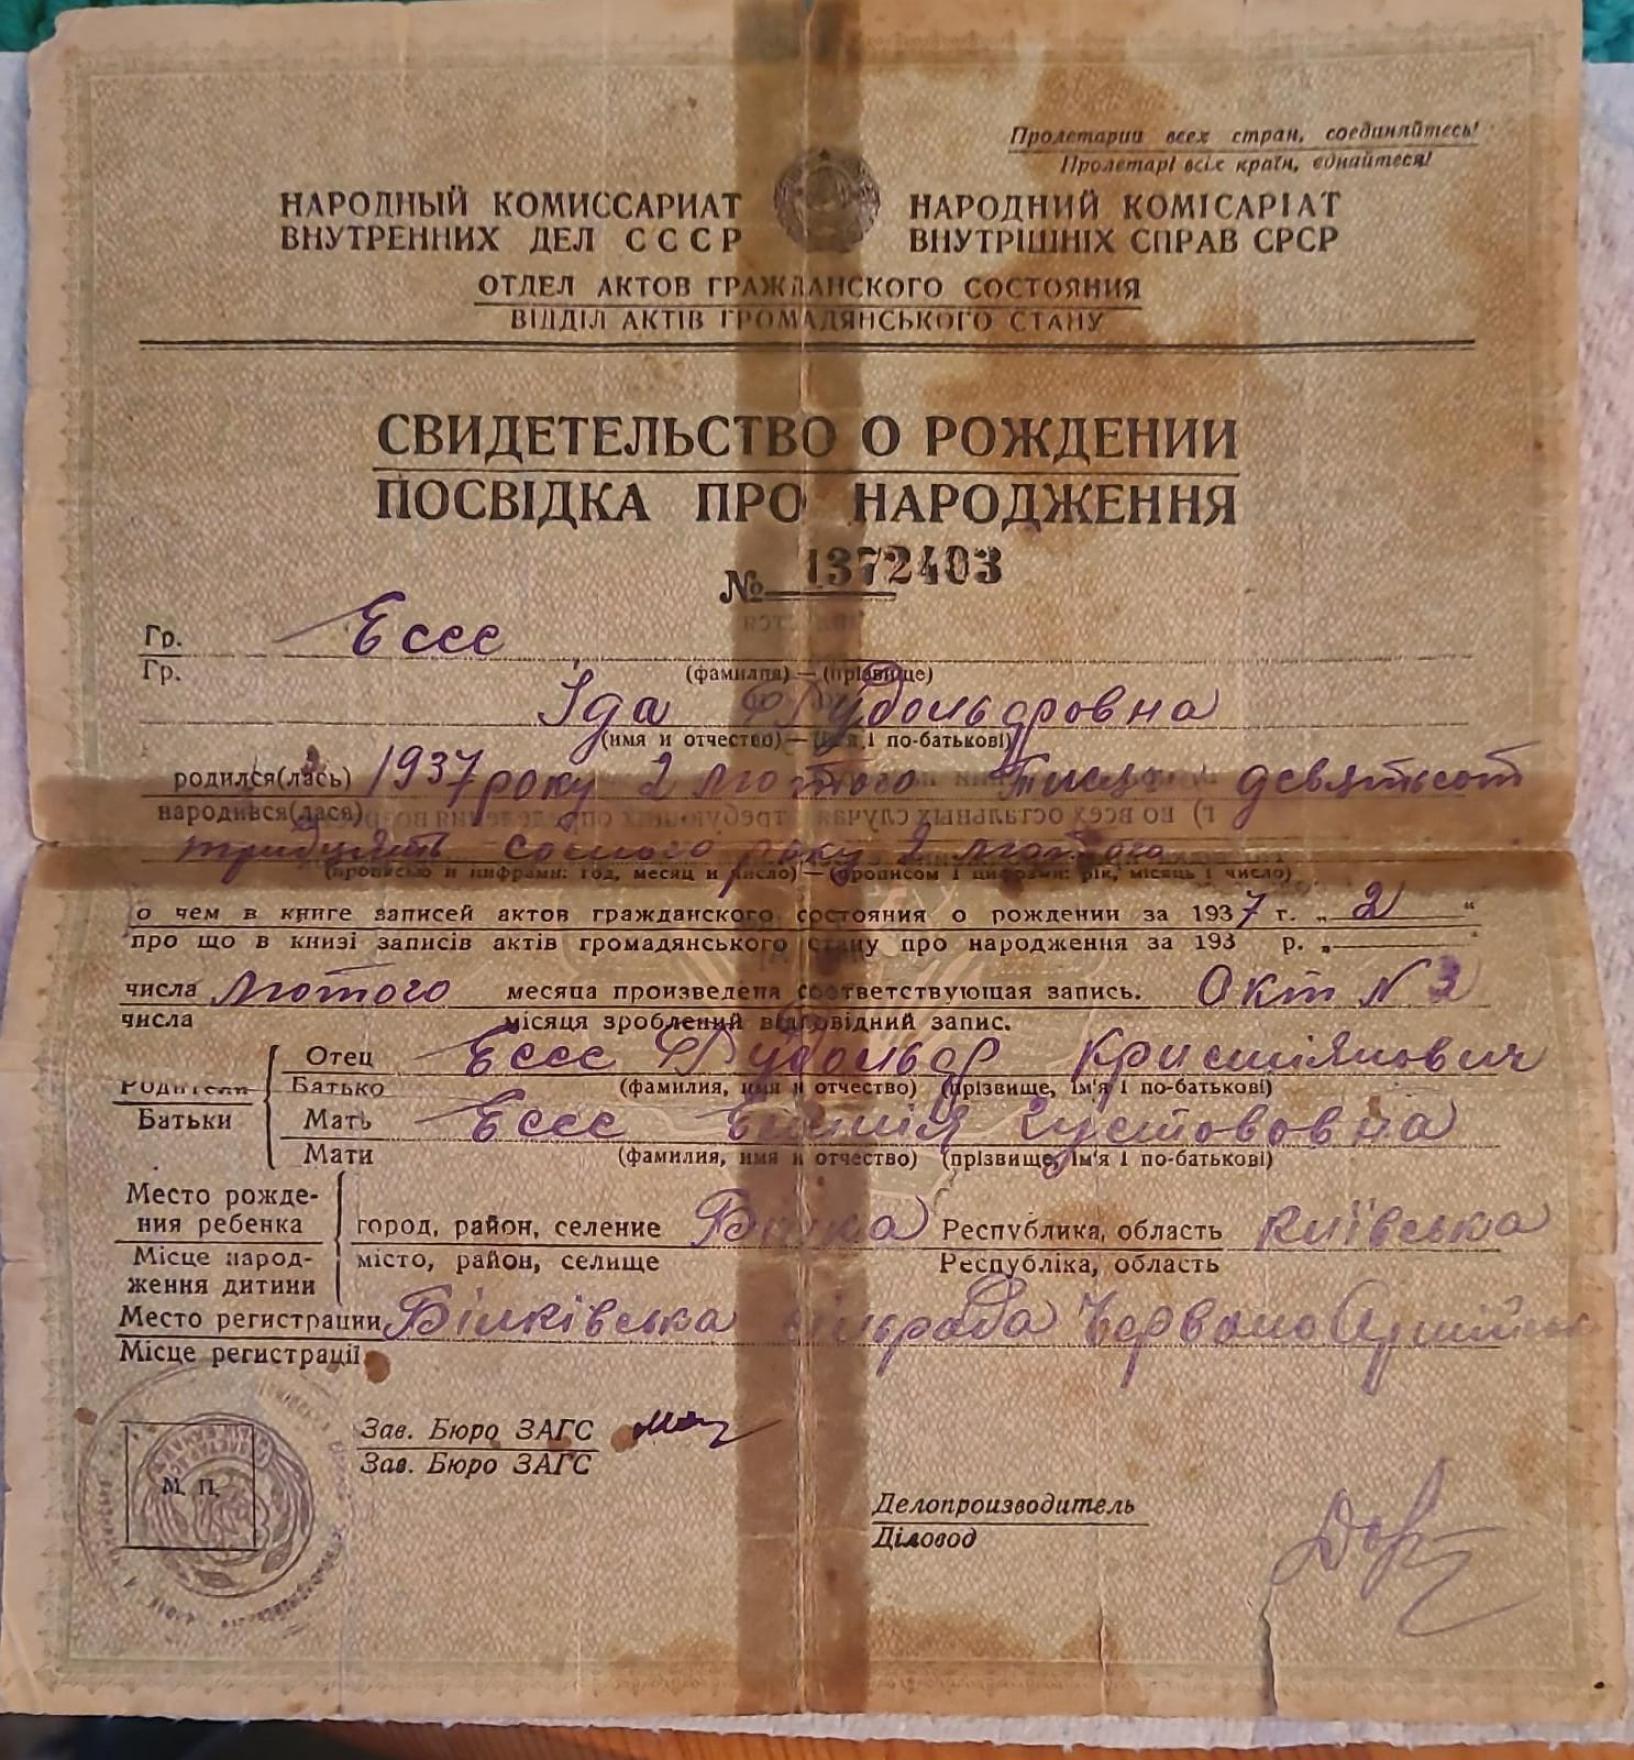 Пролетарии всех стран, соединяйтесь!
Пролетарі всіх країн, єднайтеся!
НАРОДНЫЙ КОМИССАРИАТ
ВНУТРЕННИХ ДЕЛ СССР
НАРОДНИЙ КОМІСАРІАТ
ВНУТРІШНІХ СПРАВ СРСР
ОТДЕЛ АКТОВ ГРАЖДАНСКОГО СОСТОЯНИЯ
ВІДДІЛ АКТІВ ГРОМАДЯНСЬКОГО СТАНУ
СВИДЕТЕЛЬСТВО О РОЖДЕНИИ
ПОСВІДКА ПРО НАРОДЖЕННЯ
№ 1372403
Гр. Ессе
Гр. (фамилия) — (прізвище)
Іда Рудольфовна
(имя и отчество) — (ім'я і по-батькові)
родился(лась) 1937 року 2 лютого тисяч девятьсот
народився(лася)
тридцять сьомого року 2 лютого
(прописью и цифрами: год, месяц и число) — (прописом і цифрами: рік, місяць і число)
о чем в книге записей актов гражданского состояния о рождении за 1937 г. „ 2 “
про що в книзі записів актів громадянського стану про народження за 193 р. „ “
числа лютого месяца произведена соответствующая запись. Окт N 3
числа місяця зроблений відповідний запис.
Родители Отец Ессе Рудольф Христіянович
Батько (фамилия, имя и отчество) (прізвище, ім'я і по-батькові)
Батьки Мать Ессе Густововна
Мати (фамилия, имя и отчество) (прізвище, ім'я і по-батькові)
Место рожде-
ния ребенка город, район, селение Республика, область Київська
Місце народ- місто, район, селище Республіка, область
ження дитини
Место регистрации Білківська сільрада Червоно
Місце регистрації
М. П.
Зав. Бюро ЗАГС
Зав. Бюро ЗАГС
Делопроизводитель
Діловод